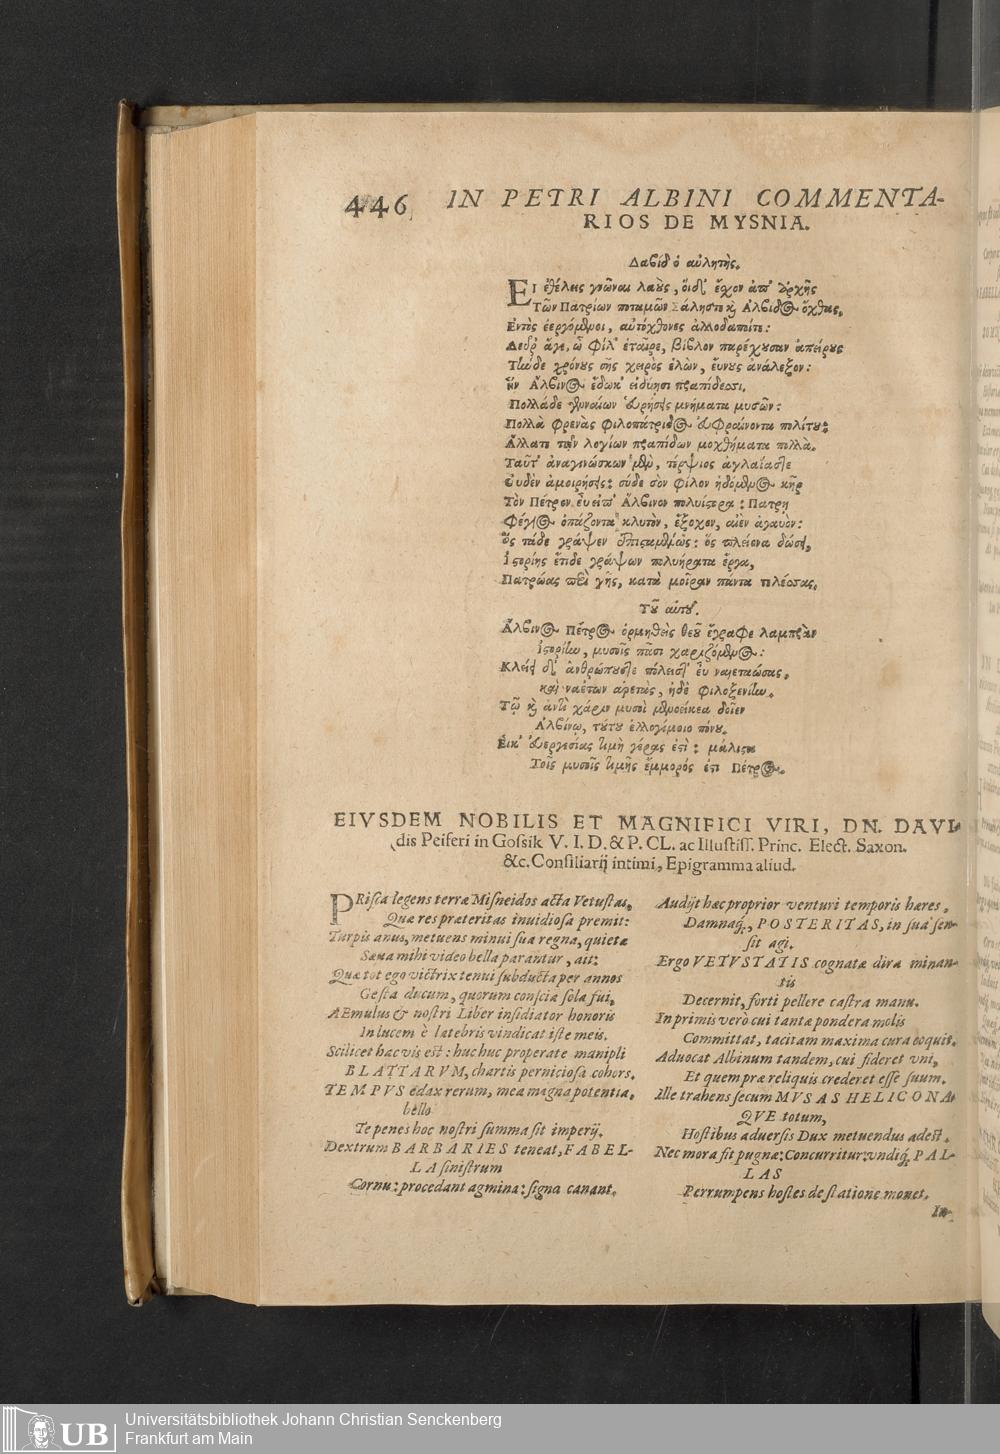 446 IN PETRI ALBINI COMMENTA-
RIOS DE MYSNIA.
Δαβὶδ ὁ αὐλητὴς.
Εἰ ἐθέλεις γνῶναι λαοὺς, οἵδ' ἔχον ἀπ' ἀρχῆς
Τῶν Πατρίων ποταμῶν Σάλης τε καὶ Ἄλβιδος ὄχθας,
Ἐντὸς ἐεργόμενοι, αὐτόχθονες ἀλλοδαποίτε:
Δεῦρ' ἄγε, ὦ φίλ' ἑταῖρε, βίβλον παρέχουσαν ἀπείρους
Τήνδε χρόνους σῆς χειρὸς ἑλὼν, ἔυνους ἀνάλεξον:
ἣν Ἄλβινος ἔδωκ' εἰδυίησι πραπίδεσσι.
Πολλὰ δὲ μνήματα μυσῶν:
Πολλὰ φρενὰς φιλοπάτριδος εὐφραίνοντα πολίτου:
Ἄλλατε τῶν λογίων πραπίδων μοχθήματα πολλὰ.
Ταῦτ' ἀναγινώσκων μὲν, τέρψιος ἀγλαίας τε
Οὐδὲν ἀμοιρήσεις: σύδε σὸν φίλον ἡδόμενος κῆρ
Τὸν Πέτρον εὖ εἰπ' Ἄλβινον πολυίστορα: Πατρη
Φέγγος ὀπάζοντα κλυτὸν, ἔξοχον, αἰὲν ἀγαυὸν:
Ὃς τάδε γράψεν ἐπισταμένως: ὃς πλείονα δώσει,
Ἱστορίης ἔτιδε γράψων πολυήρατα ἔργα,
Πατρώας περὶ γῆς, κατὰ μοῖραν πάντα τελέσσας.
Τοῦ αὐτοῦ.
Ἄλβινος Πέτρος ὁρμηθεὶς θεοῦ ἔγραψε λαμπρὰν
ἱστορίην, μυσοῖς πᾶσι χαριζόμενος:
Κλείει δ' ἀνθρώπους τε πόλεις τ' εὖ ναιεταώσας,
καὶ ναετῶν ἀρετὰς, ἠδὲ φιλοξενίην.
Τῷ καὶ ἀντὶ χάριν μυσοὶ μενοεικέα δοῖεν
Ἀλβίνῳ, τούτου ἐλλογίμοιο πόνου.
Εἰκ' εὐεργεσίας τιμὴ γέρας ἐστὶ: μάλιστα
Τοῖς μυσοῖς τιμῆς ἔμμορός ἐστι Πέτρος.
EIVSDEM NOBILIS ET MAGNIFICI VIRI, DN. DAVI-
dis Peiferi in Gossik V. I. D. & P. CL. ac Illustiss. Princ. Elect. Saxon.
&c. Consiliarij intimi, Epigramma aliud.
PRisca legens terræ Misneidos acta Vetustas,
Quæ res præteritas inuidiosa premit:
Turpis anus, metuens minui sua regna, quietæ
Sæua mihi video bella parantur, ait:
Quæ tot ego victrix tenui subducta per annos
Gesta ducum, quorum conscia sola fui,
AEmulus & nostri Liber insidiator honoris
In lucem è latebris vindicat iste meis.
Scilicet hac vis est: huc huc properate manipli
BLATTARVM, chartis perniciosa cohors.
TEMPVS edax rerum, mea magna potentia,
bello
Te penes hoc nostri summa sit imperij.
Dextrum BARBARIES teneat, FABEL-
LA sinistrum
Cornu: procedant agmina: signa canant.
Audijt hæc proprior venturi temporis hæres,
Damnaq;, POSTERITAS, in sua sen-
sit agi.
Ergo VETVSTATIS cognatæ dira minan-
tis
Decernit, forti pellere castra manu.
In primis verò cui tantæ pondera molis
Committat, tacitam maxima cura coquit.
Aduocat Albinum tandem, cui fideret vni,
Et quem præ reliquis crederet esse suum.
Ille trahens secum MVSAS HELICONA-
QVE totum,
Hostibus aduersis Dux metuendus adest.
Nec mora sit pugnæ: Concurritur: vndiq; PAL-
LAS
Perrumpens hostes de statione monet.
In-
UB
Universitätsbibliothek Johann Christian Senckenberg
Frankfurt am Main